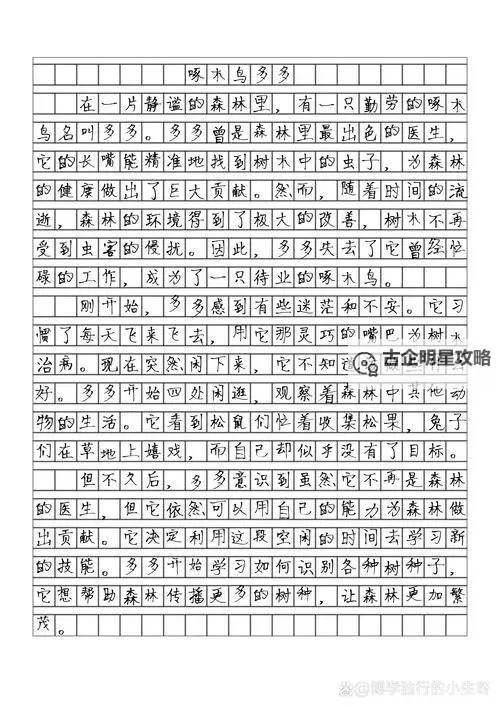 啄木鸟多多
在一片静谧的森林里，有一只勤劳的啄木
鸟名叫多多。多多曾是森林里最出色的医生，
它的长嘴能精准地找到树木中的虫子，为森林
的健康做出了巨大贡献。然而，随着时间的流
逝，森林的环境得到了极大的改善，树木不再
受到虫害的侵扰。因此，多多失去了它曾经忙
碌的工作，成为了一只待业的啄木鸟。
刚开始，多多感到有些迷茫和不安。它习
惯了每天飞来飞去，用它那灵巧的嘴巴为树木
治病。现在突然闲下来，它不知道
古企明星攻略
好。多多开始四处闲逛，观察着森林中其他动
物的生活。它看到松鼠们忙着收集松果，兔子
们在草地上嬉戏，而自己却似乎没有了目标。
但不久后，多多意识到虽然它不再是森林
的医生，但它依然可以用自己的能力为森林做
出贡献。它决定利用这段空闲的时间去学习新
的技能。多多开始学习如何识别各种树种子，
它想帮助森林传播更多的树种，让森林更加繁
茂。
@博学独行的小生寄